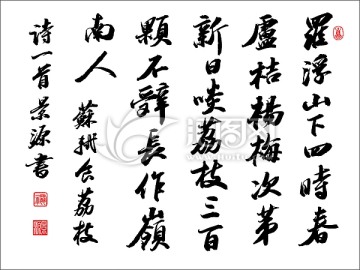 羅浮山下四時春
盧桔楊梅次第
新日啖荔枝三百
顆不辭長作嶺
南人 蘇軾食荔枝
詩一首 景源書